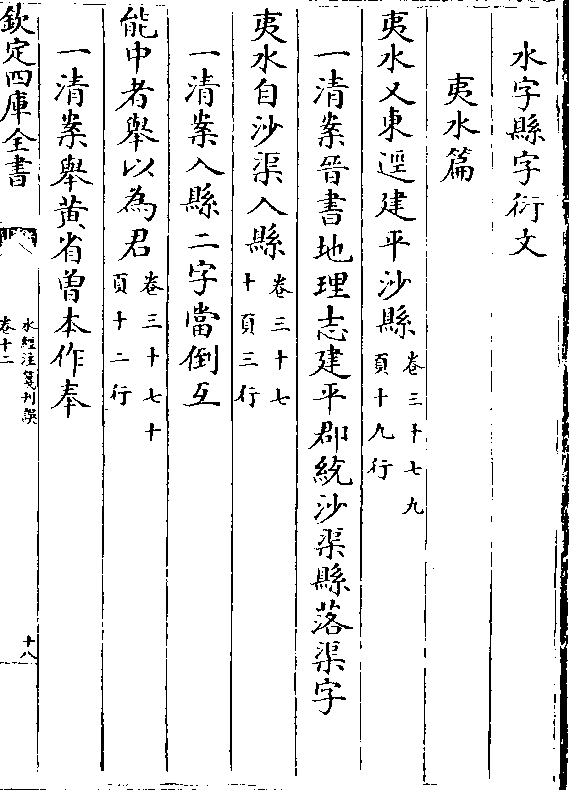 水字縣字衍文
夷水篇
夷水又東逕建平沙縣卷三十七九頁十九行
一清案晉書地理志建平郡統沙渠縣落渠字
夷水自沙渠入縣卷三十七十頁三行
一清案入縣二字當倒互
能中者舉以為君卷三十七十頁十二行
一清案舉黃省曽本作奉
欽定四庫全書
水經注箋刊誤
卷十二
十八